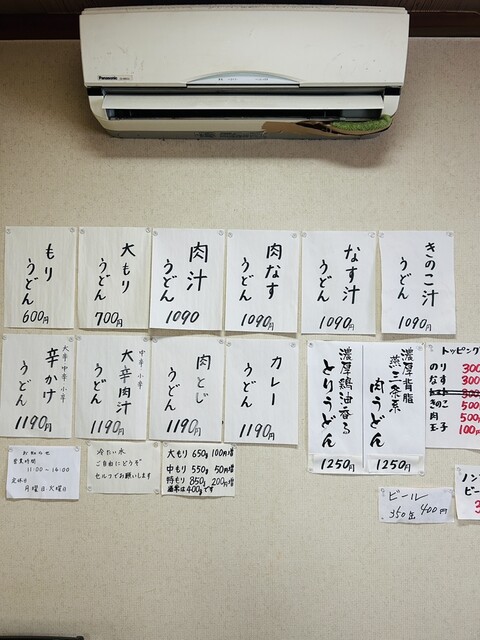 Panasonic
もり
うどん
600円
大もり
うどん
700円
肉汁
うどん
1090
肉なす
うどん
1090円
なす汁
うどん
1090円
きのこ汁
うどん
1090円
大辛 中辛 小辛
辛かけ
うどん
1190円
中辛 小辛
大辛肉汁
うどん
1190円
肉とじ
うどん
1190円
カレー
うどん
1190円
濃厚鶏油香る
とりうどん
1250円
濃厚背脂
燕三条系
肉うどん
1250円
トッピング
のり 300
なす 300
きのこ 500
肉 500円
玉子 100円
お知らせ
営業時間
11:00～14:00
定休日
月曜日火曜日
冷たい水
ご自由にどうぞ
セルフでお願いします
大もり 650g 100円増
中もり 550g 50円増
特もり 850g 200円増
通常は400gです
ビール
350缶 400円
ノン
ビー
3